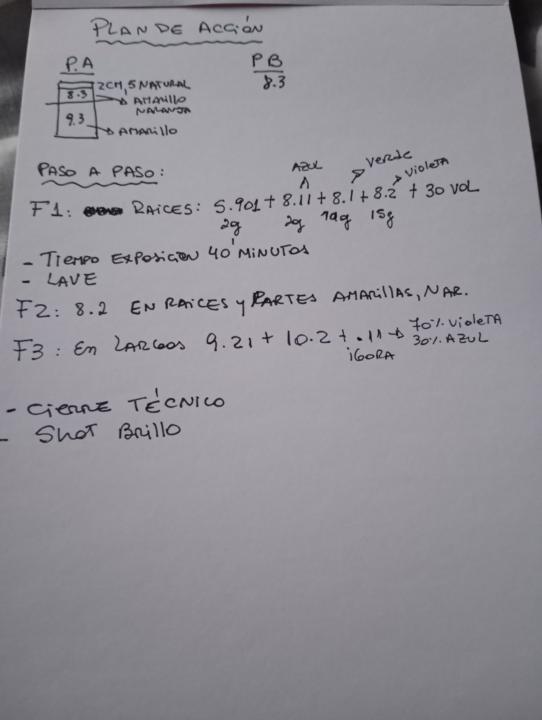 PLAN DE ACCIÓN
P.A
PB
8.3
2CM, 5 NATURAL
8.3
AMARILLO
NARANJA
9.3
AMARILLO
PASO A PASO:
AZUL
VERDE
VIOLETA
F1: RAICES: 5.901 + 8.11 + 8.1 + 8.2 + 30 VOL
2g 2g 19g 15g
- TIEMPO EXPOSICION 40 MINUTOS
- LAVE
F2: 8.2 EN RAICES y PARTES AMARILLAS, NAR.
F3: EN LARGOS 9.21 + 10.2 + .11 → 70% VIOLETA
30% AZUL
IGORA
- CIERRE TÉCNICO
- SHOT BRILLO